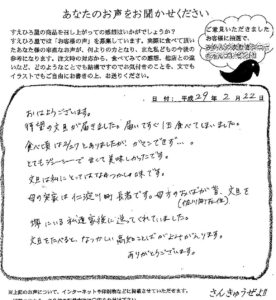 あなたのお声をお聞かせください
すえひろ屋の商品を召し上がっての感想はいかがでしょうか？
すえひろ屋では「お客様の声」を募集しています。実際に食べて頂い
たお客様の率直なお声が、何よりの力となり、また私どもの今後の
参考になります。注文時の対応から、食べてみての感想、他店との違
いなど、どのようなことでも結構ですのでお気付きのことを、文でも
イラストでもご自由にお書きの上、お送りください。
ご意見いただきました
お客様に抽選で、
日付：平成 29年 2月 22日
おはようございます。
待望の文旦が届きました。届いてすぐ1玉食べてしまいました。
食べ頃は もう少し と ありましたが がまんできず…。
とてもジューシーで 甘くて 美味しかったです。
文旦は私にとってはなつかしの味です。
母の実家は仁淀川町長者です。母方のおばが昔、文旦を
(佐川町在住)
堺にいる私達家族に送ってくれていました。
文旦をたべると、なつかしい高知のことばがよみがえります。
ありがとうございます。
さんきゅうぜよ!!
※上記のお声について、インターネットや印刷物などに掲載させていただきます。